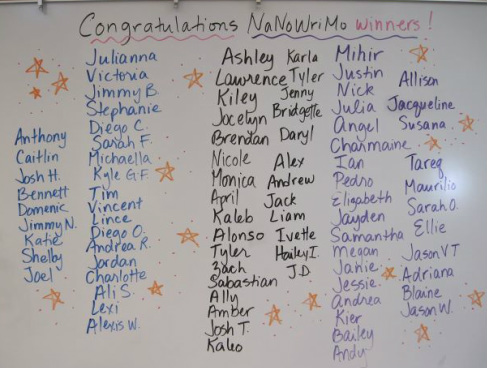 Congratulations NaNoWriMo winners!
Anthony
Caitlin
Josh H.
Bennett
Domenic
Jimmy N.
Katie
Shelby
Joel
Julianna
Victoria
Jimmy B
Stephanie
Diego C.
Sarah F.
Michaella
Kyle G.F.
Tim
Vincent
Lince
Diego O.
Andrea R.
Jordan
Charlotte
Ali S.
Lexi
Alexis W.
Ashley
Lawrence
Kiley
Jocelyn
Brendan
Nicole
Monica
April
Kaleb
Alonso
Tyler
Zach
Sabastian
Ally
Amber
Josh T.
Kaleo
Karla
Tyler
Jenny
Bridgette
Daryl
Alex
Andrew
Jack
Liam
Ivette
Hailey I.
J.D.
Mihir
Justin
Nick
Julia
Angel
Charmaine
Ian
Pedro
Elisabeth
Jayden
Samantha
Megan
Janie
Jessie
Andrea
Kier
Bailey
Andy
Allison
Jacqueline
Susana
Tareq
Maurilio
Sarah O.
Ellie
Jason VT
Adriana
Blaine
Jason W.